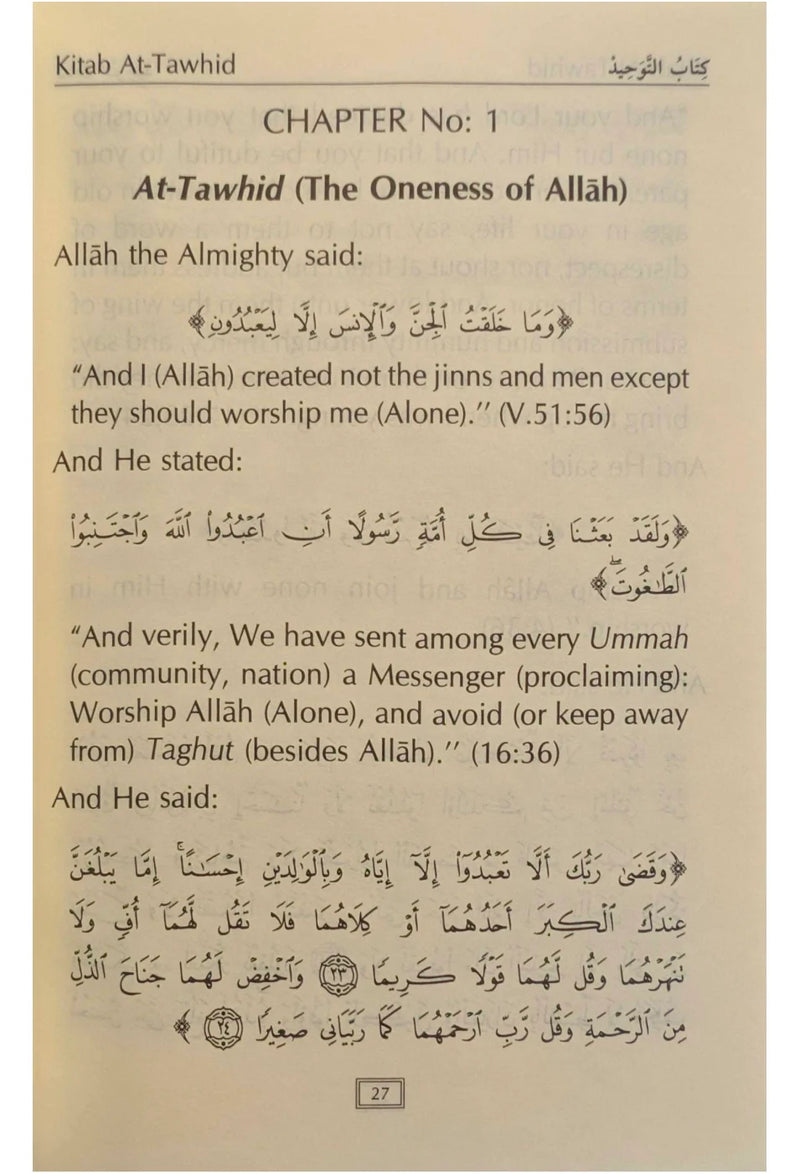 Kitab At-Tawhid كِتَابُ التَّوَحِيدُ
CHAPTER No: 1
At-Tawhid (The Oneness of Allāh)
Allāh the Almighty said:
﴿وَمَا خَلَقْتُ ٱلْجِنَّ وَٱلْإِنسَ إِلَّا لِيَعْبُدُونِ﴾
“And I (Allāh) created not the jinns and men except
they should worship me (Alone).” (V.51:56)
And He stated:
﴿وَلَقَدْ بَعَثْنَا فِى كُلِّ أُمَّةٍ رَّسُولًا أَنِ ٱعْبُدُوا۟ ٱللَّهَ وَٱجْتَنِبُوا۟
ٱلطَّٰغُوتَۖ﴾
“And verily, We have sent among every Ummah
(community, nation) a Messenger (proclaiming):
Worship Allāh (Alone), and avoid (or keep away
from) Taghut (besides Allāh).” (16:36)
And He said:
﴿وَقَضَىٰ رَبُّكَ أَلَّا تَعْبُدُوٓا۟ إِلَّآ إِيَّاهُ وَبِٱلْوَٰلِدَيْنِ إِحْسَٰنًاۚ إِمَّا يَبْلُغَنَّ
عِندَكَ ٱلْكِبَرَ أَحَدُهُمَآ أَوْ كِلَاهُمَا فَلَا تَقُل لَّهُمَآ أُفٍّ وَلَا
تَنْهَرْهُمَا وَقُل لَّهُمَا قَوْلًا كَرِيمًا ٢٣ وَٱخْفِضْ لَهُمَا جَنَاحَ ٱلذُّلِّ
مِنَ ٱلرَّحْمَةِ وَقُل رَّبِّ ٱرْحَمْهُمَا كَمَا رَبَّيَانِى صَغِيرًا ٢٤﴾
27